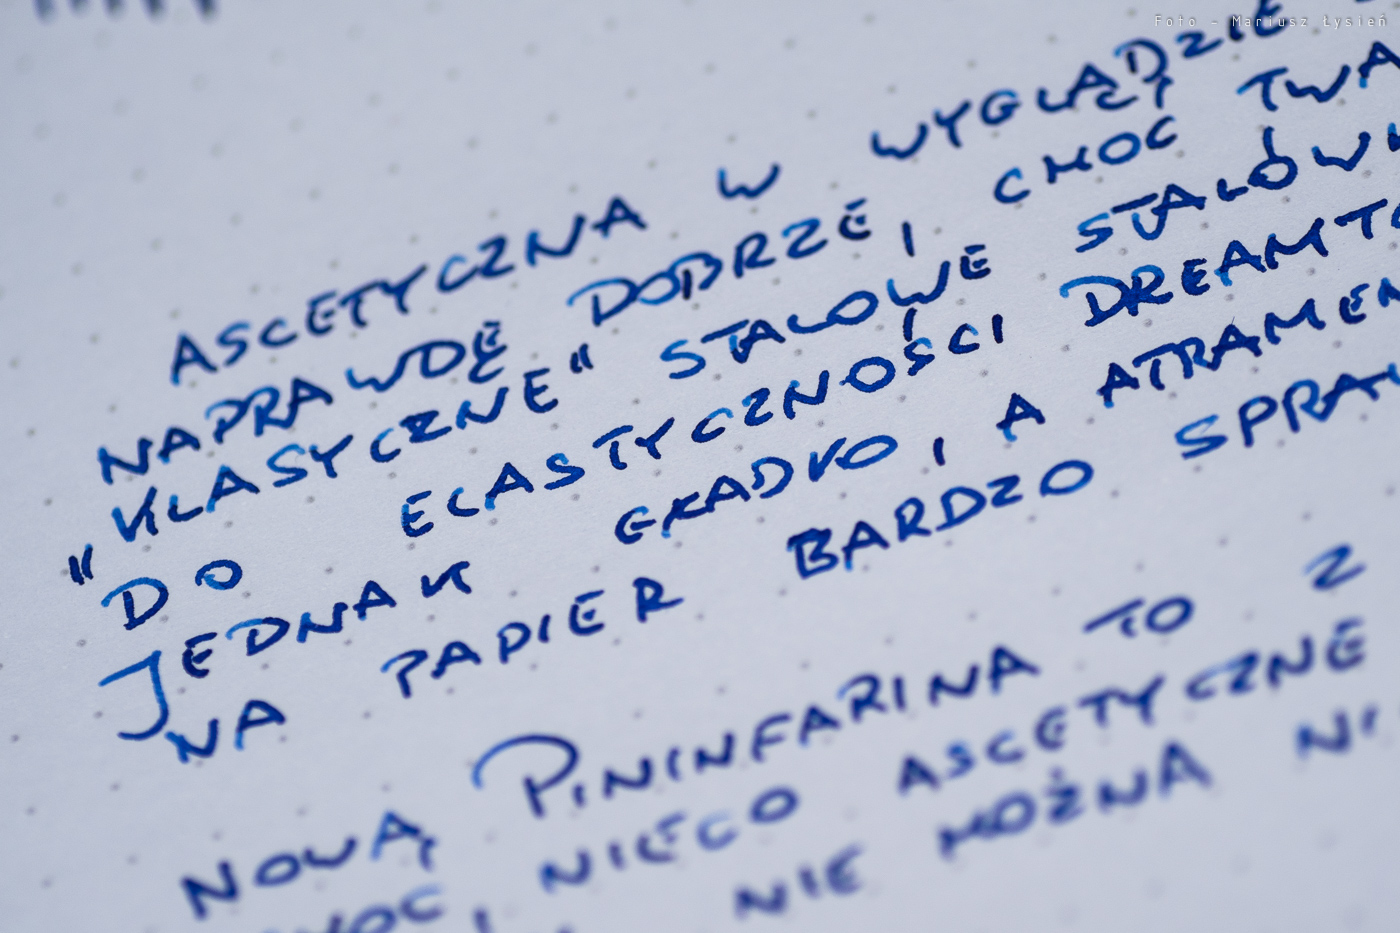 Foto - Mariusz Łysień
ASCETYCZNA W WYGLĄDZIE
NAPRAWDĘ DOBRZE, CHOĆ TWA
"KLASYCZNE" STALOWE STALÓW
DO ELASTYCZNOŚCI DREAMTO
JEDNAK GŁADKO, A ATRAMEN
NA PAPIER BARDZO SPRAW
NOWĄ PININFARINA TO Z
NIECO ASCETYCZNE
NIE MOŻNA NI